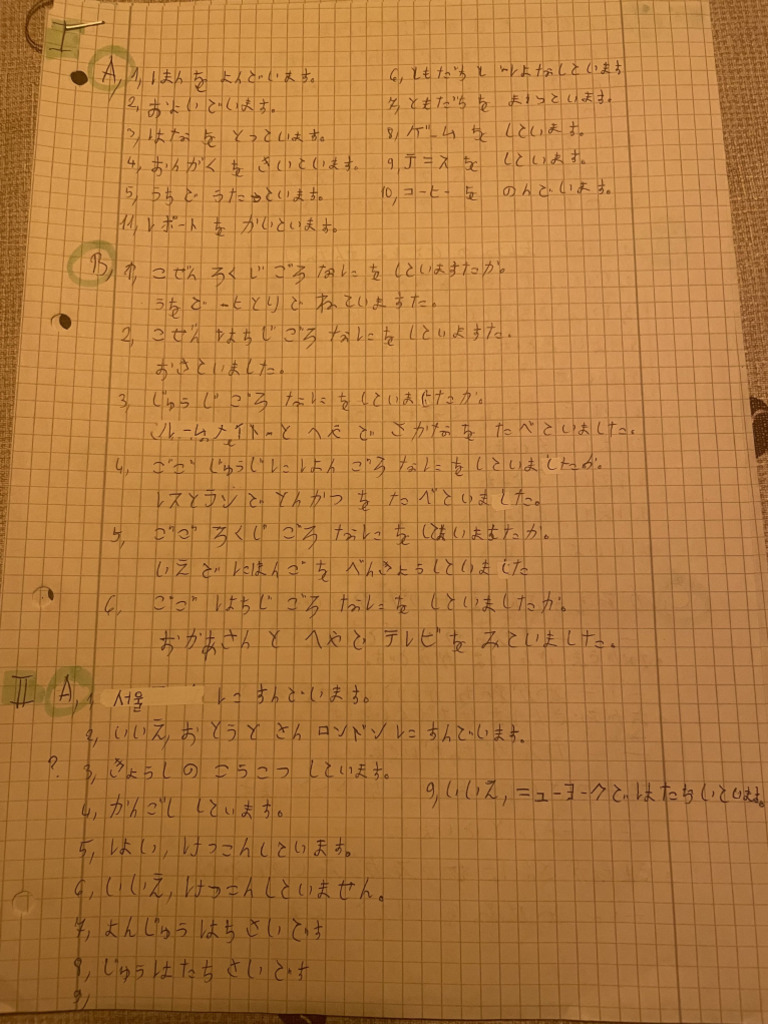 I
A, 1, ほんを よんでいます。
2, およいでいます。
3, はなを とっています。
4, おんがくを きいています。
5, うちで うたっています。
11, レポートを かいています。
6, ともだちと はなしています
7, ともだちを まっています。
8, ゲームを しています。
9, テニスを しています。
10, コーヒーを のんでいます。
B, 1, ごぜん ろくじごろ なにを していましたか。
うちで ひとりで ねていました。
2, ごぜん はちじごろ なにを していました。
おきていました。
3, じゅうじごろ なにを していましたか。
ルームメイトと へやで さかなを たべていました。
4, ごご じゅうじにはん ごろ なにを していましたか。
レストランで とんかつを たべていました。
5, ごご ろくじごろ なにを していましたか。
いえで にほんごを べんきょうしていました
6, ごご はちじごろ なにを していましたか。
おかあさんと へやで テレビを みていました。
II A, 1, 서울 に すんでいます。
2, いいえ, おとうとさん ロンドンに すんでいます。
? 3, きょうしの こうこつ しています。
4, かんごし しています。
5, はい, けっこんしています。
6, いいえ, けっこんしていません。
7, よんじゅうはち さいです
8, じゅうはたち さいです
9,
9, いいえ, ニューヨークで はたらいています。